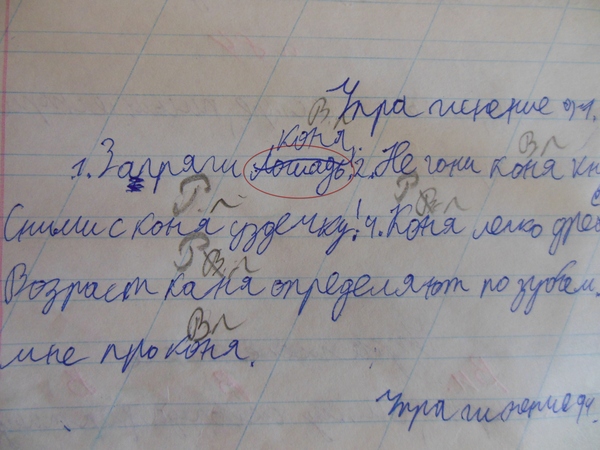 Упражнение 91.
В.п
коня.
В п
1. Запряги лошадь. 2. Не гони коня кн
Р.п Р В п
Сними с коня уздечку! 4. Коня легко дре
Р В.п
Возраст каня определяют по зубам.
Вп
мне про коня.
Упражнение 94.